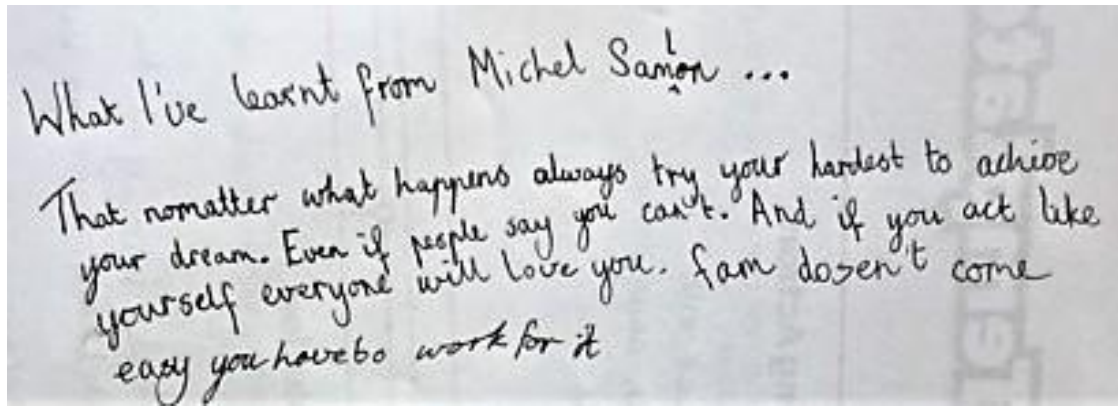 What I've learnt from Michel Samlon ...
That nomatter what happens always try your hardest to achive
your dream. Even if people say you can't. And if you act like
yourself everyone will love you. fam dosen't come
easy you haveto work for it